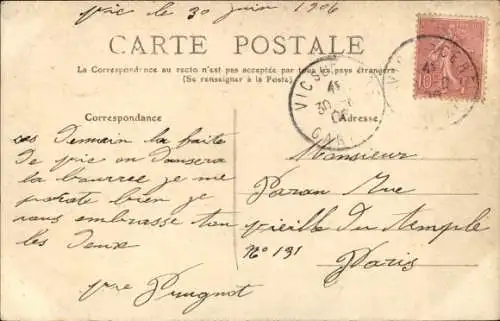 Vic le 30 juin 1906
CARTE POSTALE
La Correspondance au recto n'est pas acceptée par tous les pays étrangers
(Se renseigner à la Poste)
Correspondance
Adresse
VIC SUR CÈRE
30
06
10
ces Demain la faite
De vic on Dansera
la bourree je me
porte bien je
vous embrasse ton
les Deux
Monsieur
Paran Rue
vieille Du temple
No 131
Paris